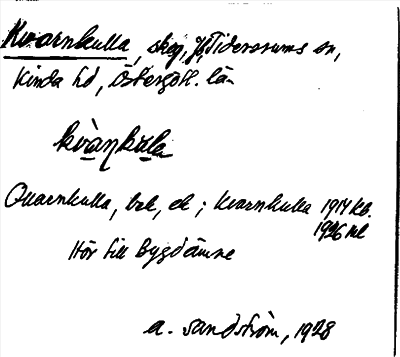 Kvarnkulla, skog, Tidersrums sn,
Kinda hd, Östergötl. län
kvànkula
Quarnkulla, ek; Kvarnkulla 1917 kb.
1926 ml
Hör till Bygdämne
A. Sandström, 1928